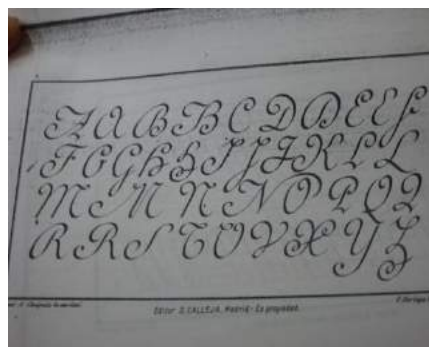 A A B B C D D E E E
F G G H H I J J K L L
M M N N O P Q Q
R R S T U V X Y Z
Editor S. CALLEJA, Madrid - Es propiedad.